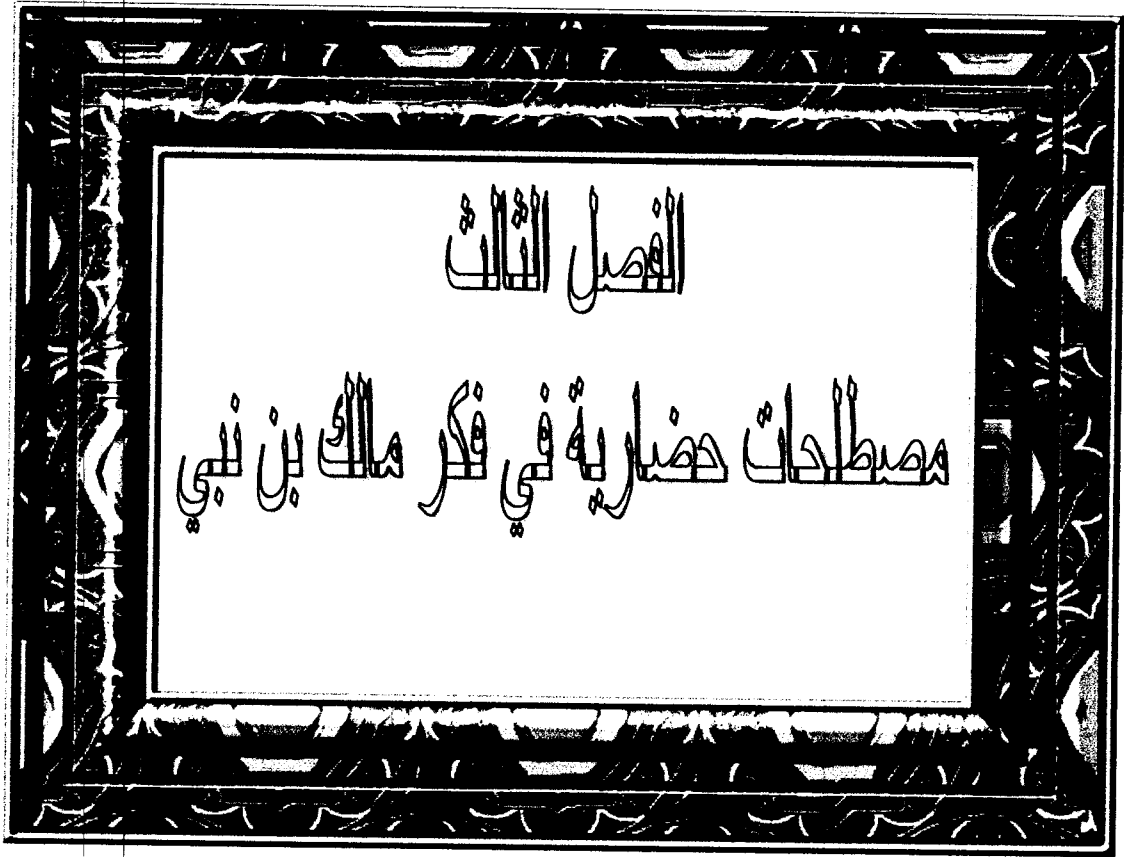 الفصل الثالث
مصطلحات حضارية في فكر مالك بن نبي